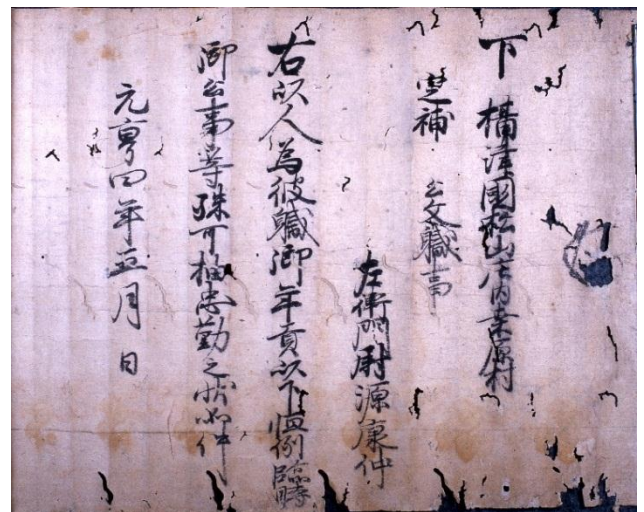 下 攝津國松山庄内桒原村
定補 公文職事
左衛門尉源康仲
右以人爲彼職御年貢以下恒例臨時
御公事等殊可抽忠勤之状如件
元亨四年五月 日